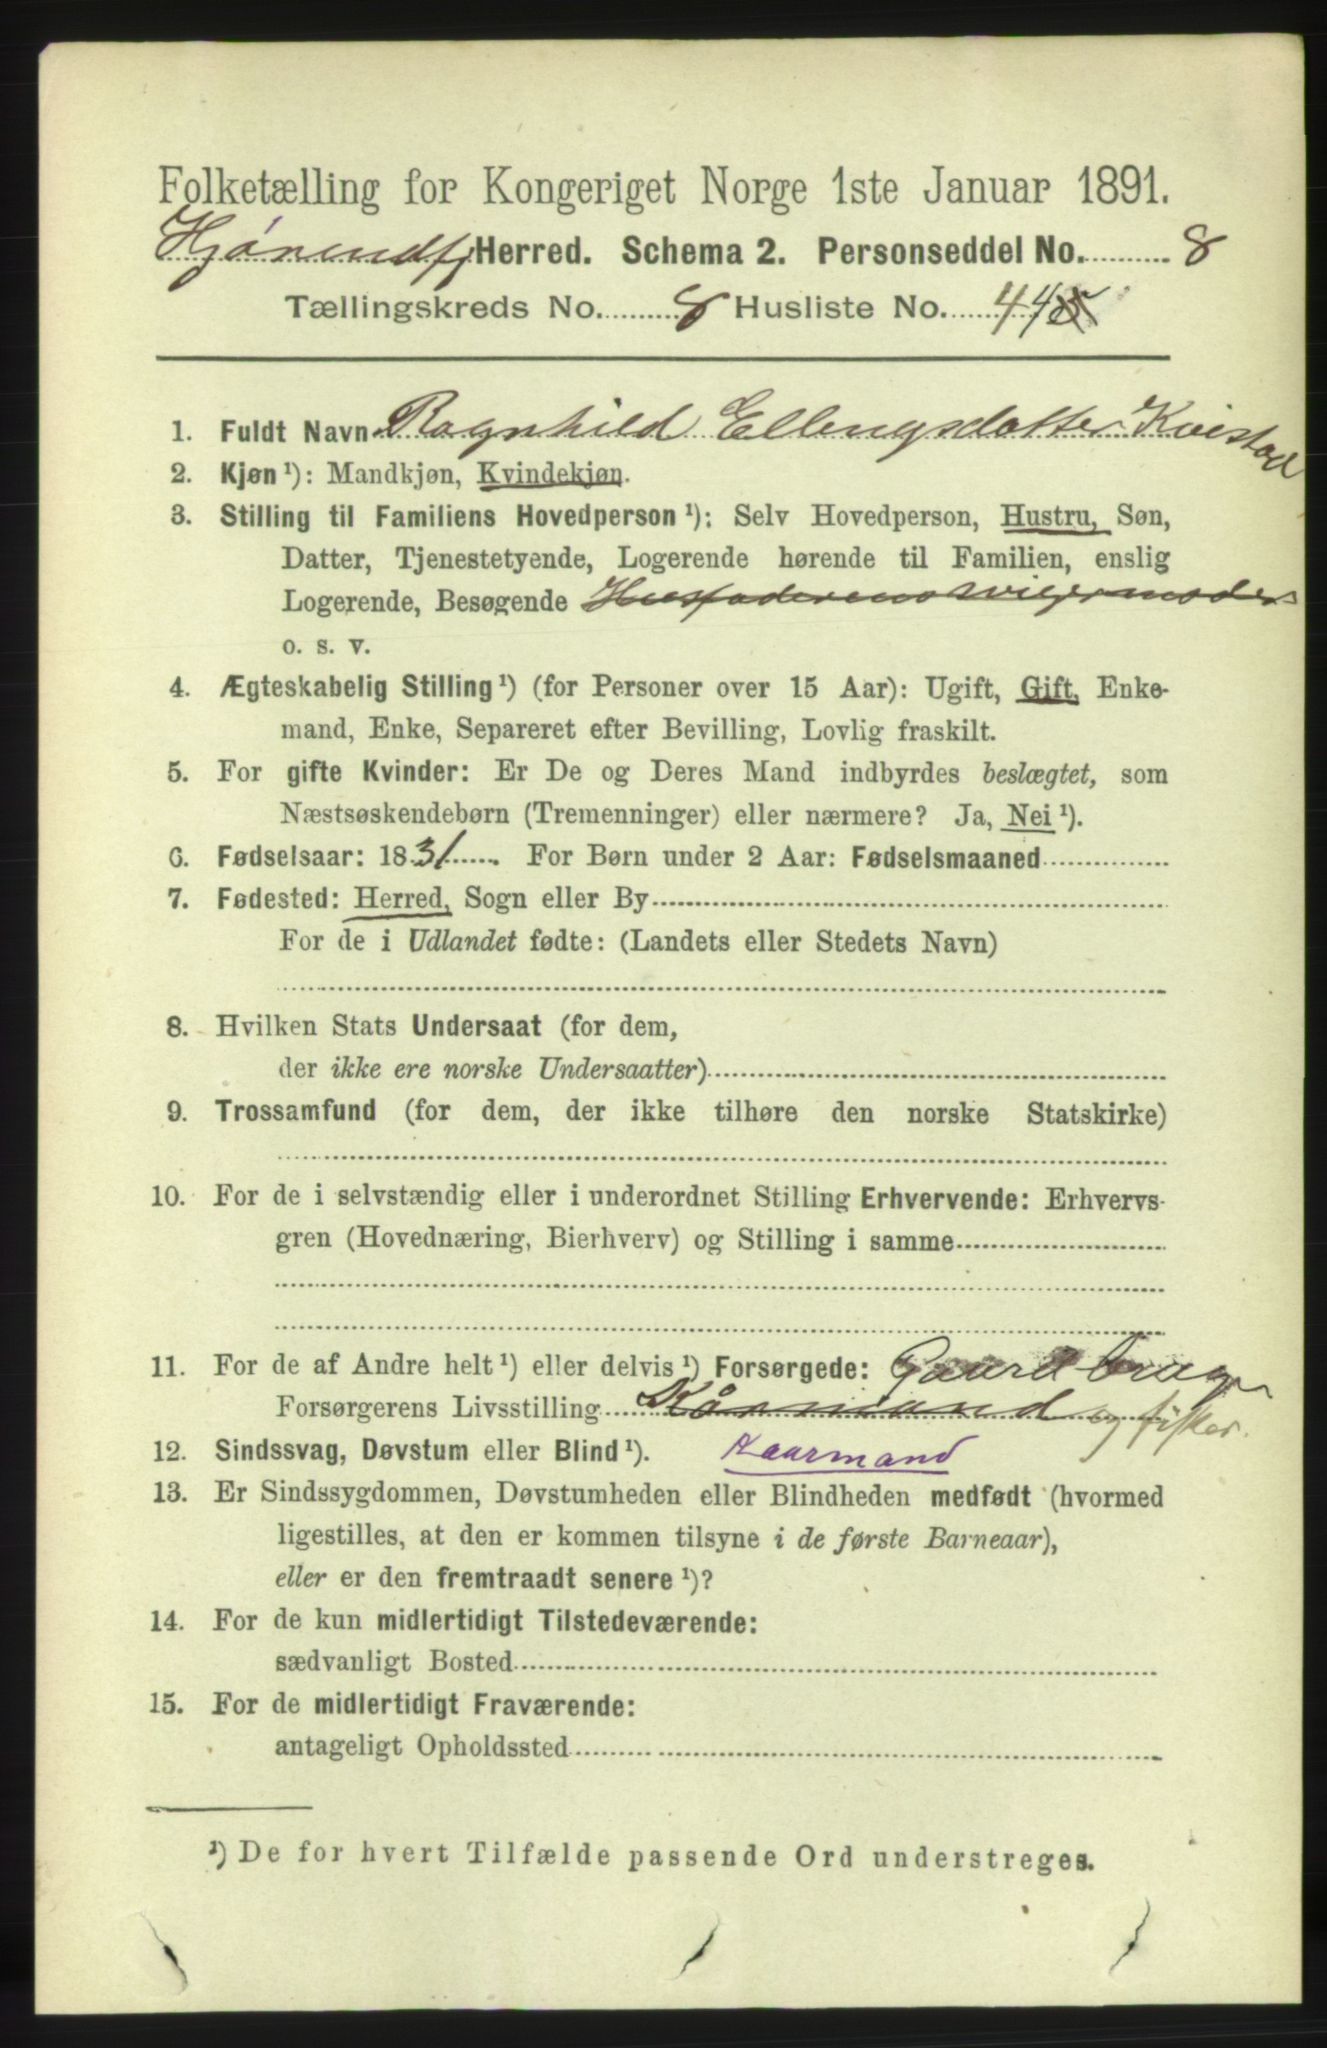 Folketælling for Kongeriget Norge 1ste Januar 1891.
Hjørendfj Herred. Schema 2. Personseddel No. 8
Tællingskreds No. 8 Husliste No. 44
1. Fuldt Navn Ragnhild Ellingsdatter Kvistad
2. Kjøn ¹): Mandkjøn, Kvindekjøn.
3. Stilling til Familiens Hovedperson ¹): Selv Hovedperson, Hustru, Søn,
Datter, Tjenestetyende, Logerende hørende til Familien, enslig
Logerende, Besøgende Husfaderens svigermoder
o. s. v.
4. Ægteskabelig Stilling ¹) (for Personer over 15 Aar): Ugift, Gift, Enke-
mand, Enke, Separeret efter Bevilling, Lovlig fraskilt.
5. For gifte Kvinder: Er De og Deres Mand indbyrdes beslægtet, som
Næstsøskendebørn (Tremenninger) eller nærmere? Ja, Nei ¹).
6. Fødselsaar: 1831. For Børn under 2 Aar: Fødselsmaaned
7. Fødested: Herred, Sogn eller By
For de i Udlandet fødte: (Landets eller Stedets Navn)
8. Hvilken Stats Undersaat (for dem,
der ikke ere norske Undersaatter)
9. Trossamfund (for dem, der ikke tilhøre den norske Statskirke)
10. For de i selvstændig eller i underordnet Stilling Erhvervende: Erhvervs-
gren (Hovednæring, Bierhverv) og Stilling i samme
11. For de af Andre helt ¹) eller delvis ¹) Forsørgede: Gaardbruger
Forsørgerens Livsstilling Kårmand og fisker.
12. Sindssvag, Døvstum eller Blind ¹). Kaarmand
13. Er Sindssygdommen, Døvstumheden eller Blindheden medfødt (hvormed
ligestilles, at den er kommen tilsyne i de første Barneaar),
eller er den fremtraadt senere ¹)?
14. For de kun midlertidigt Tilstedeværende:
sædvanligt Bosted
15. For de midlertidigt Fraværende:
antageligt Opholdssted
¹) De for hvert Tilfælde passende Ord understreges.